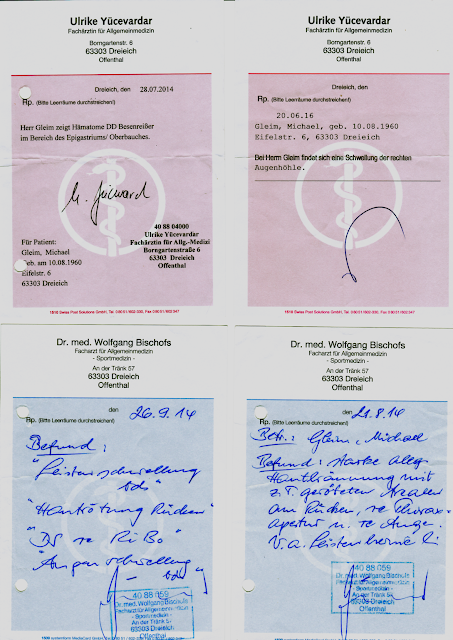 Ulrike Yücevardar
Fachärztin für Allgemeinmedizin
Borngartenstr. 6
63303 Dreieich
Offenthal
Dreieich, den 28.07.2014
Rp. (Bitte Leerräume durchstreichen!)
Herr Gleim zeigt Hämatome DD Besenreißer
im Bereich des Epigastriums/ Oberbauches.
40 88 04000
Ulrike Yücevardar
Fachärztin für Allg.-Medizi
Borngartenstraße 6
63303 Dreieich
Offenthal
Für Patient:
Gleim, Michael
Geb. am 10.08.1960
Eifelstr. 6
63303 Dreieich
1810 Swiss Post Solutions GmbH, Tel.
Ulrike Yücevardar
Fachärztin für Allgemeinmedizin
Borngartenstr. 6
63303 Dreieich
Offenthal
Dreieich, den
Rp. (Bitte Leerräume durchstreichen!)
20.06.16
Gleim, Michael, geb. 10.08.1960
Eifelstr. 6, 63303 Dreieich
Bei Herrn Gleim findet sich eine Schwellung der rechten
Augenhöhle.
1810 Swiss Post Solutions GmbH, Tel.
Dr. med. Wolfgang Bischofs
Facharzt für Allgemeinmedizin
- Sportmedizin -
An der Tränk 57
63303 Dreieich
Offenthal
den 26.9.14
Rp. (Bitte Leerräume durchstreichen!)
Befund:
"Leistenschwellung
bds"
"Hautrötung Rücken"
"DS re RiBo"
"Augenschwellung
bds"
40 88 059
Dr. med. Wolfgang Bischofs
Facharzt für Allgemeinmedizin
- Sportmedizin -
An der Tränk 57
63303 Dreieich
Offenthal
Dr. med. Wolfgang Bischofs
Facharzt für Allgemeinmedizin
- Sportmedizin -
An der Tränk 57
63303 Dreieich
Offenthal
den 21.8.14
Rp. (Bitte Leerräume durchstreichen!)
Betr.: Gleim, Michael
Befund: starke allg.
mit
z.T. geröteten Arealen
am Rücken, re Thorax-
apertur u. re Auge.
V.a. Leistenhernie li
40 88 059
Dr. med. Wolfgang Bischofs
Facharzt für Allgemeinmedizin
- Sportmedizin -
An der Tränk 57
63303 Dreieich
Offenthal